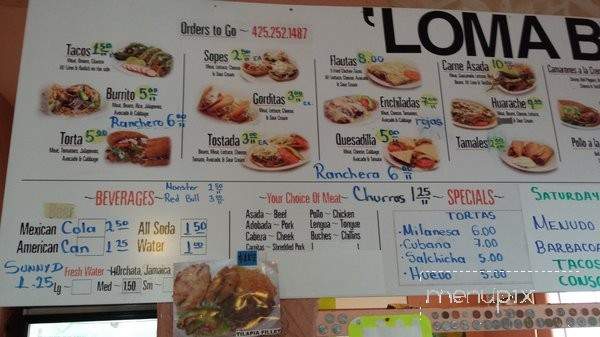 Orders to Go ~ 425.252.1487
'LOMA B
Tacos 1.50 EA
Meat, Beans, Cilantro
Burrito 5.00
Meat, Beans, Rice, Jalapenos,
Avocado & Cabbage
Ranchero 6.00
Torta 5.00
Meat, Tomatoes, Jalapenos,
Avocado & Cabbage
Sopes 2.50 EA
Meat, Lettuce, Cheese
& Sour Cream
Gorditas 3.00 EA
Meat, Lettuce, Cheese
& Sour Cream
Tostada 3.00 EA
Meat, Beans, Lettuce, Cheese,
Avocado & Sour Cream
Flautas 8.00
& Sour Cream
Enchiladas 7.00
Meat, Cheese,
Avocado & Cabbage
rojas
Quesadilla 5.00
Meat, Cheese, Lettuce,
Avocado & Tomato
Ranchera 6.00
Carne Asada 10.00
Huarache
Meat, Beans, Lettuce, Cheese,
Avocado & Sour Cream
Tamales
Camarones a la Crema
Pescado
Pollo a la
~BEVERAGES~
Monster 2.50
Red Bull 3.00
Mexican Cola 2.50
American Can 1.25
All Soda 1.50
Water 1.50
SUNNY D
1.25
Fresh Water ~ Horchata, Jamaica
Lg Med 1.50 Sm
~Your Choice Of Meat~
Asada ~ Beef
Adobada ~ Pork
Cabeza ~ Cheek
Carnitas ~ Shredded Pork
Pollo ~ Chicken
Lengua ~ Tongue
Buches ~ Chitlins
Churros 1.25
~SPECIALS~
TORTAS
• Milanesa 6.00
• Cubana 7.00
• Salchicha 5.00
• Huevo 5.00
SATURDAY
MENUDO
BARBACOA
TACOS
CONSO
TILAPIA FILLET
menupix